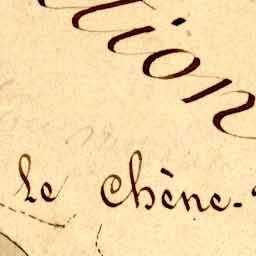 tion
le chêne-